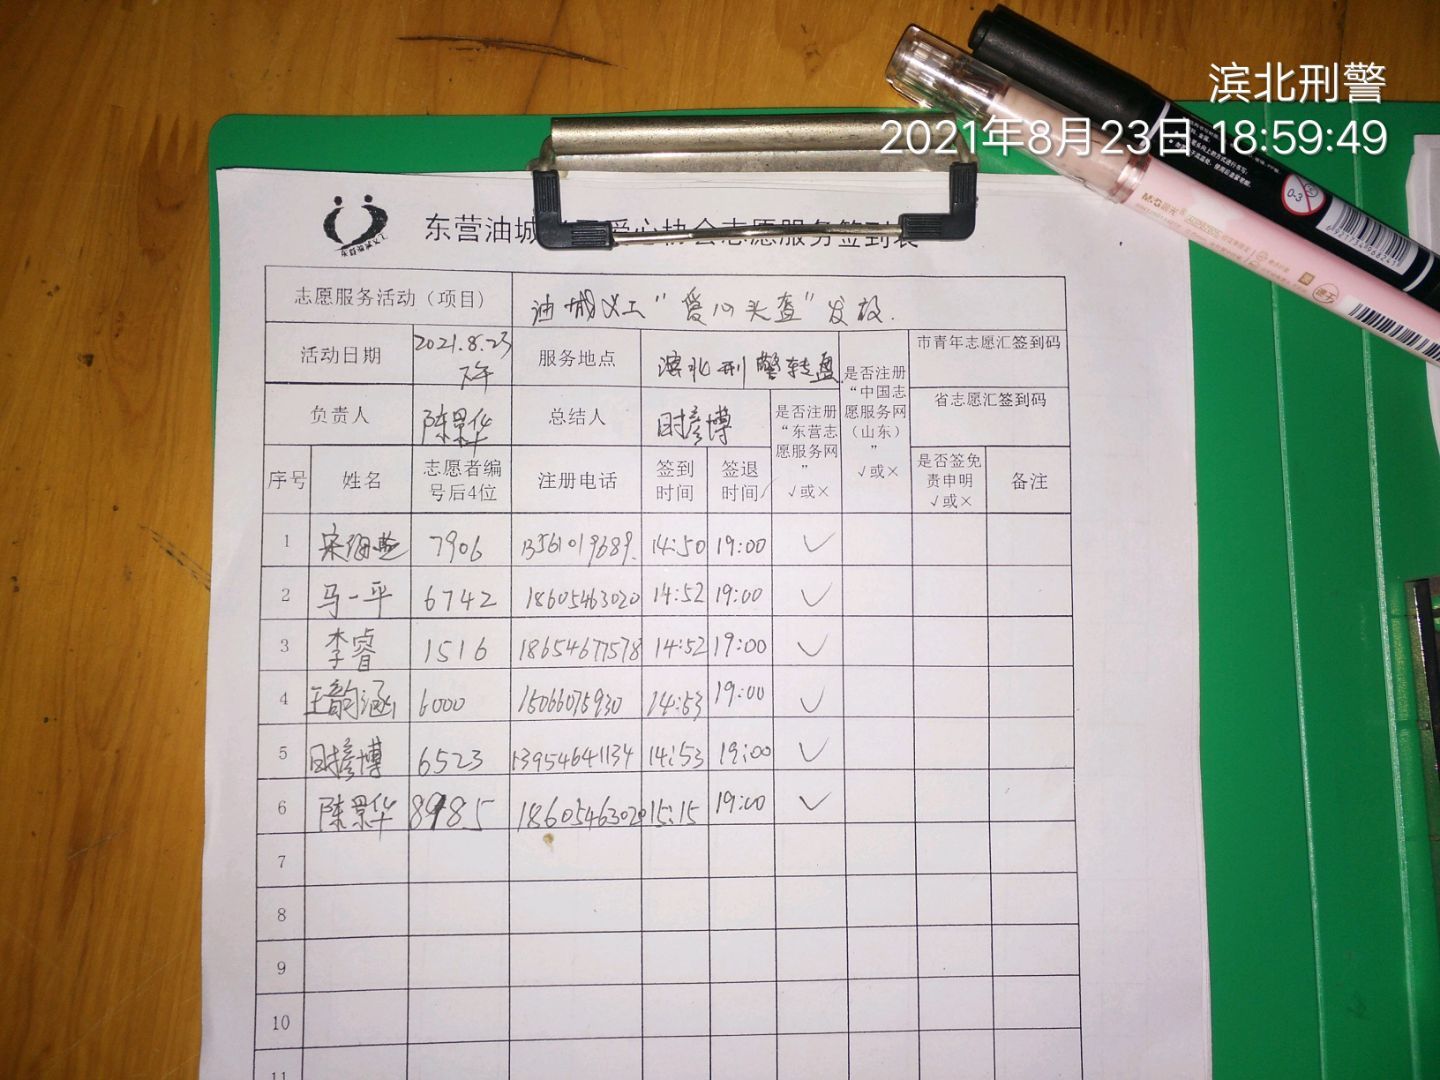 滨北刑警
2021年8月23日 18:59:49
M&G晨光
0-3
东营油城 爱心协会志愿服务签到表
志愿服务活动（项目） 油城义工“爱心头盔”发放.
活动日期 2021.8.23 下午 服务地点 滨北刑警转盘 市青年志愿汇签到码
负责人 陈景华 总结人 时彦博 省志愿汇签到码
是否注册“东营志愿服务网” √或×
是否注册“中国志愿服务网（山东）” √或×
序号 姓名 志愿者编号后4位 注册电话 签到时间 签退时间 是否签免责申明 √或× 备注
1 宋海燕 7906 13561019689. 14:50 19:00 ✓
2 马一平 6742 18605463020 14:52 19:00 ✓
3 李睿 1516 18654677578 14:52 19:00 ✓
4 王韵涵 6000 15066075930 14:53 19:00 ✓
5 时彦博 6523 13954641134 14:53 19:00 ✓
6 陈景华 8985 18605463020 15:15 19:00 ✓
7
8
9
10
11